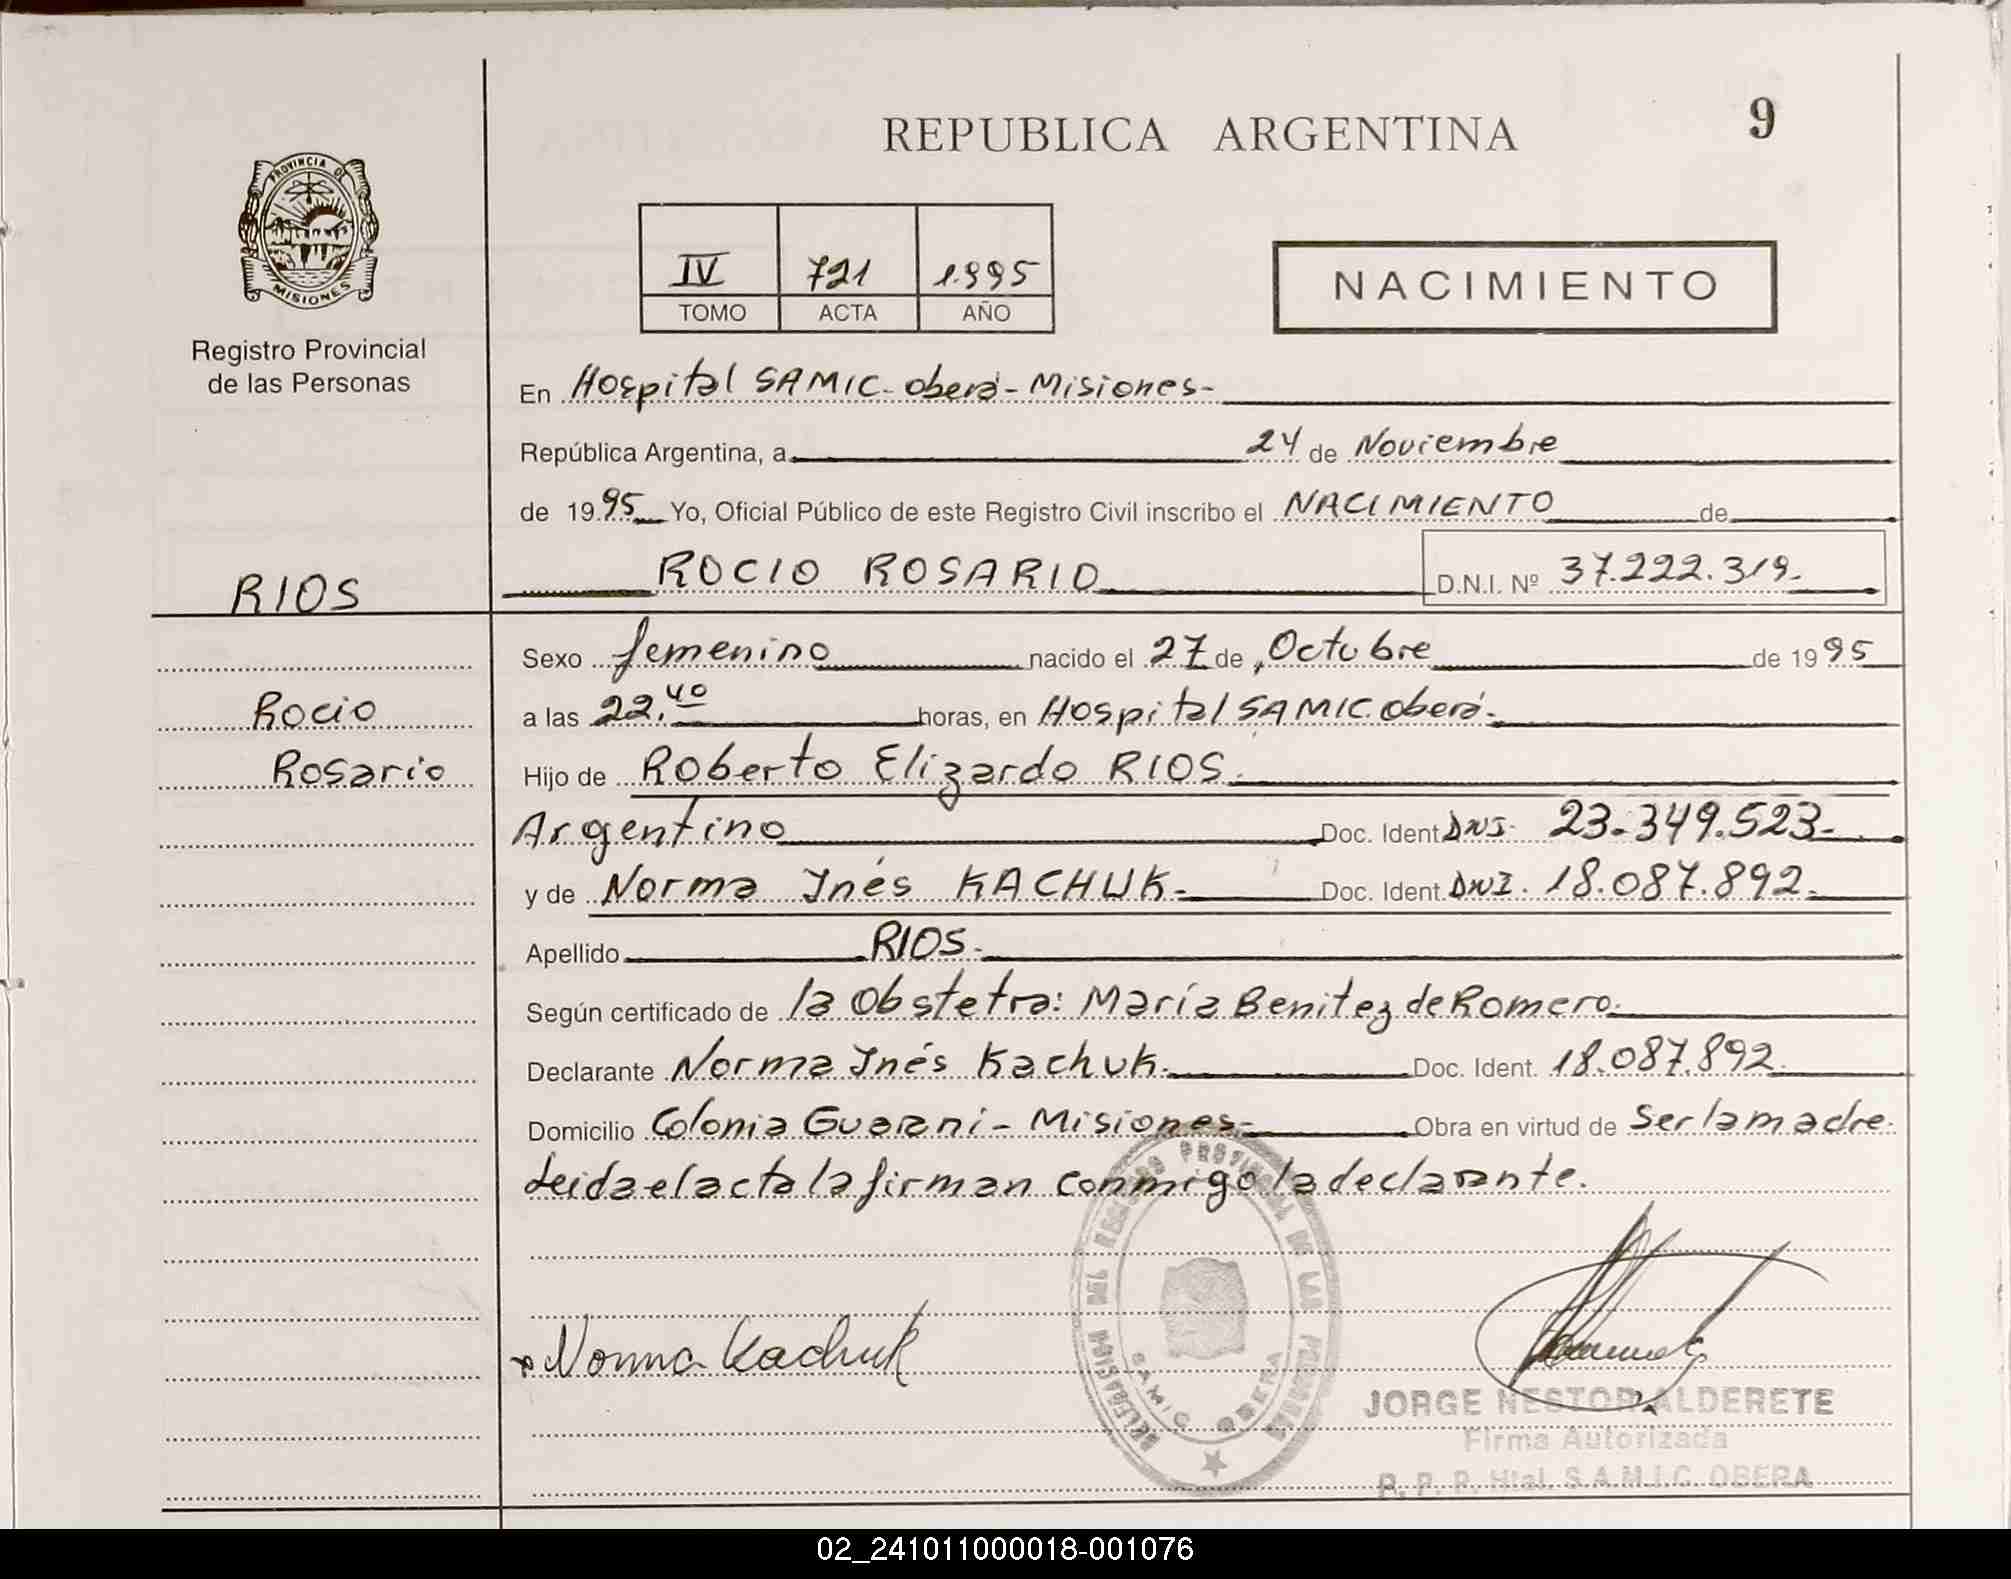 9
REPUBLICA ARGENTINA
PROVINCIA DE
MISIONES
Registro Provincial
de las Personas
IV 721 1.995
TOMO ACTA AÑO
NACIMIENTO
En Hospital SAMIC - Oberá - Misiones -
República Argentina, a 24 de Noviembre
de 1995 Yo, Oficial Público de este Registro Civil inscribo el NACIMIENTO de
RIOS
ROCIO ROSARIO D.N.I. Nº 37.222.319.
Sexo femenino nacido el 27 de Octubre de 1995
Rocio
a las 22.40 horas, en Hospital SAMIC. Oberá.
Rosario
Hijo de Roberto Elizardo RIOS.
Argentino Doc. Ident. DNI. 23.349.523.
y de Norma Inés KACHUK. Doc. Ident. DNI. 18.087.892.
Apellido RIOS.
Según certificado de la Obstetra: María Benitez de Romero.
Declarante Norma Inés Kachuk. Doc. Ident. 18.087.892.
Domicilio Colonia Guaraní - Misiones - Obra en virtud de ser la madre.
Leida el acta la firman conmigo la declarante.
Norma Kachuk
DELEGACION DEL REGISTRO PROVINCIAL DE LAS PERSONAS
SAMIC OBERA
JORGE NESTOR ALDERETE
Firma Autorizada
R. P. P. Htal. S.A.M.I.C. OBERA
02_241011000018-001076